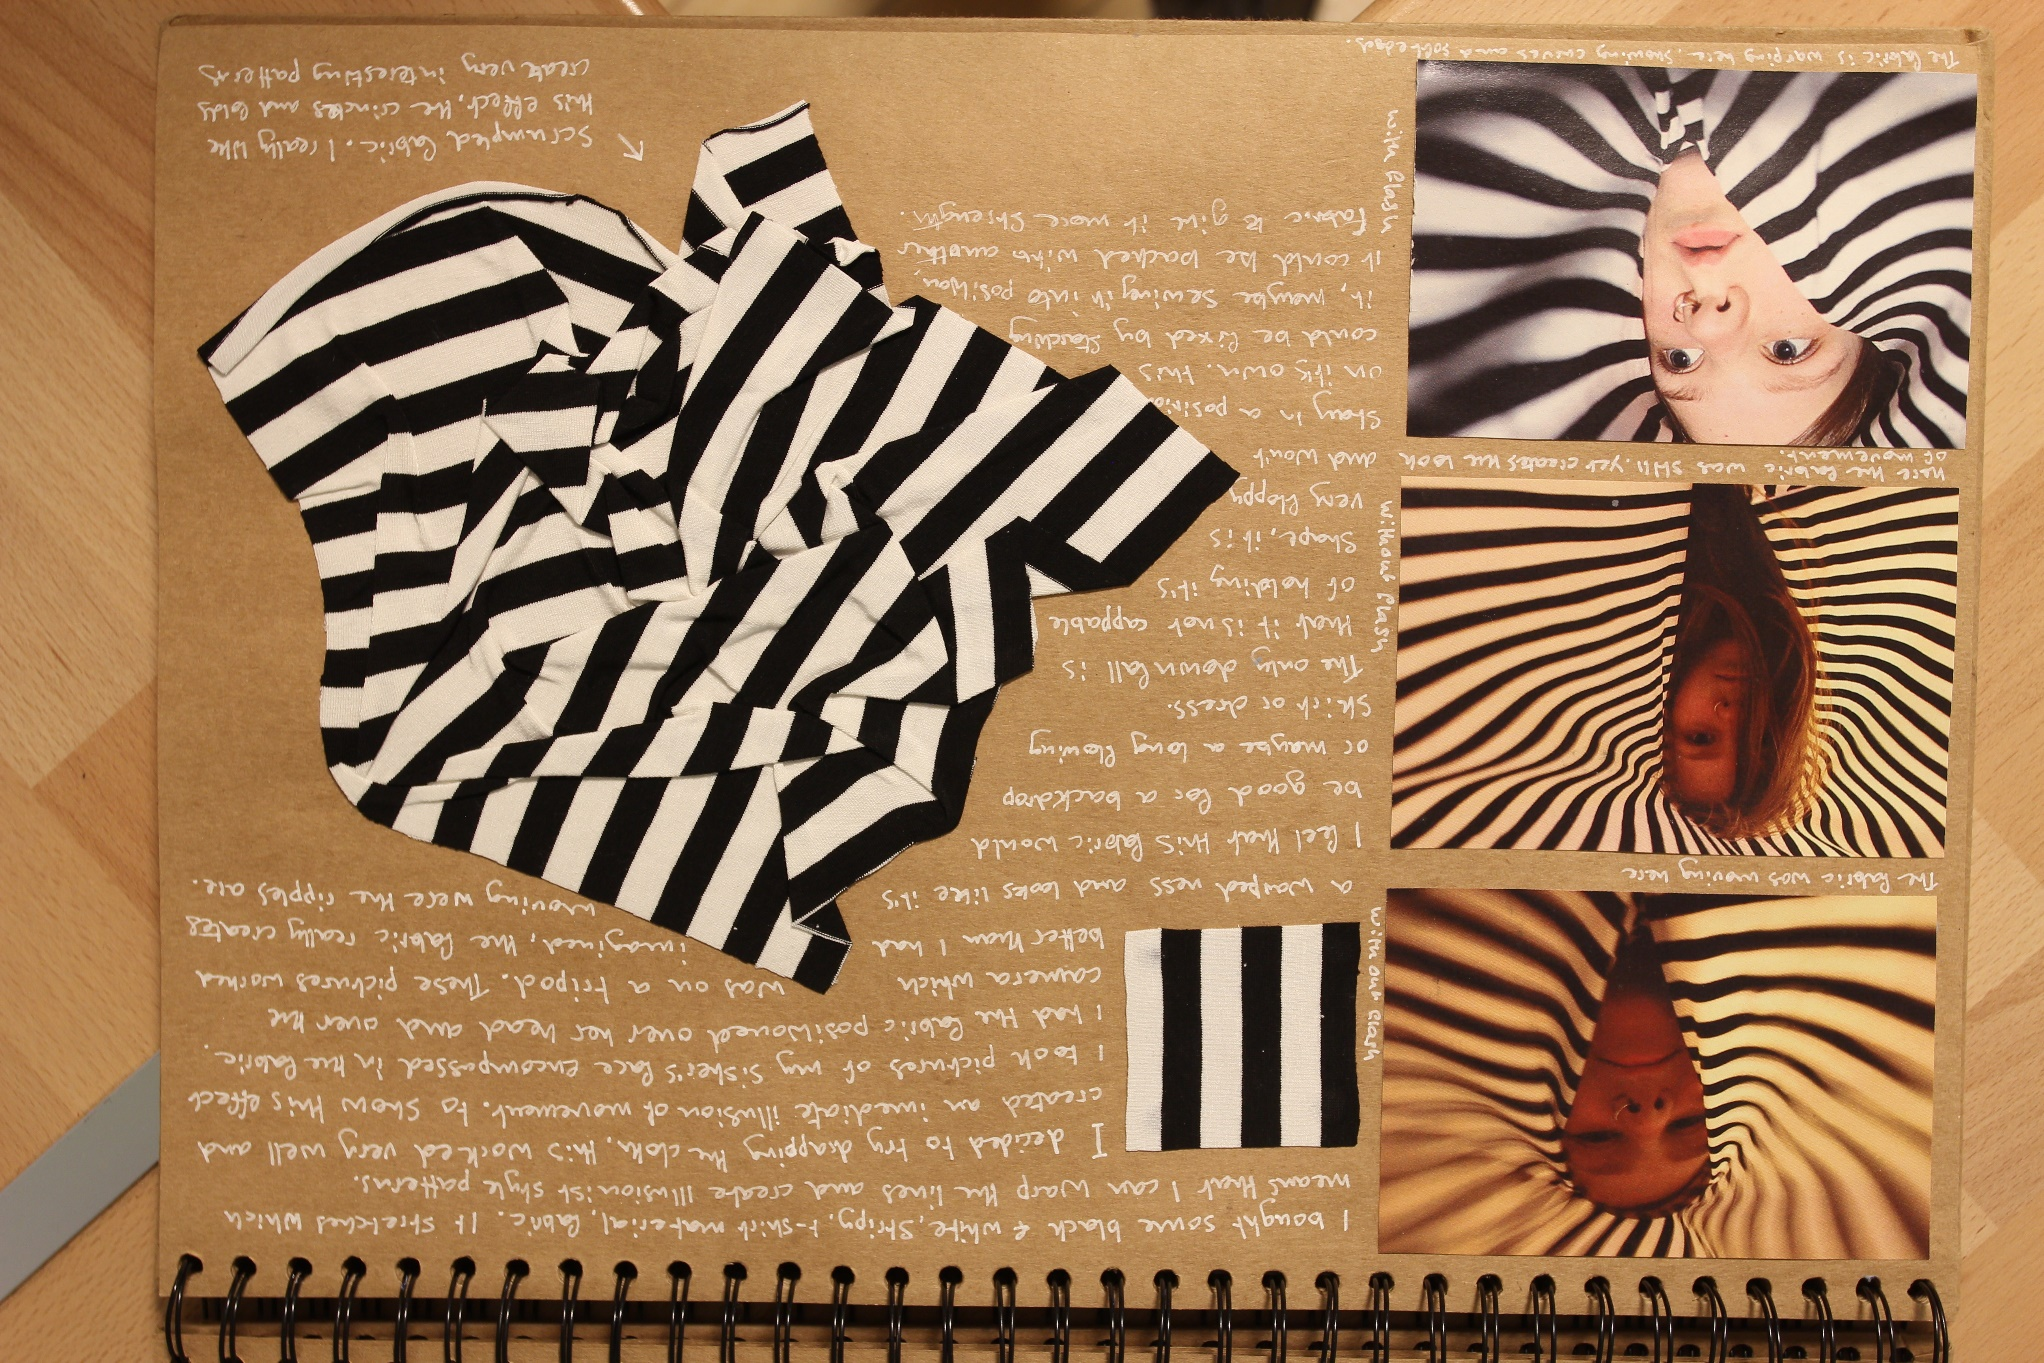 I bought some black & white, stripy, t-shirt material, fabric. It stretches which
means that I can warp the lines and create illusionist style patterns.
I decided to try drapping the cloth, this worked very well and
created an imediate illusion of movement. to show this effect
I took pictures of my sister's face encompassed in the fabric.
I had the fabric positioned over her head and over the
camera which was on a tripod. These pictures worked
better than I had imagined, the fabric really creates
a warped ness and looks like it's moving were the ripples are.
I feel that this fabric would
be good for a backdrop
or maybe a long flowing
skirt or dress.
The only downfall is
that it is not cappable
of holding it's
shape, it is
very floppy
and won't
stay in a position
on it's own. this
could be fixed by starching
it, maybe sewing it into position,
it could be backed with another
fabric to give it more strength.
scrumpled fabric. I really like
this effect, the crinckes and folds
create very interesting patterns
with out flash
The fabric was moving here
without flash
here the fabric was still, yet creates the look
of movement.
with flash
The fabric is warping here, showing curves and soft edges.